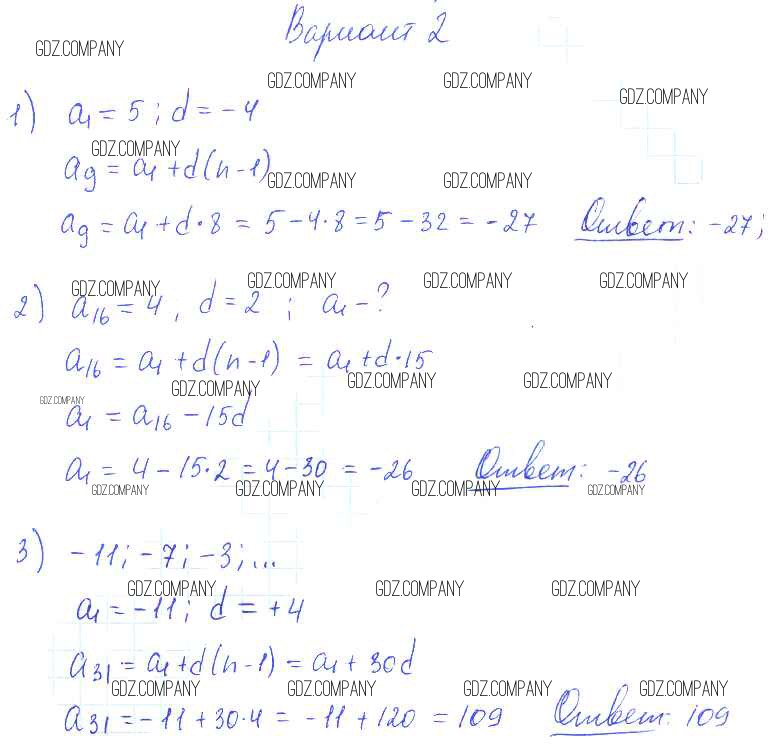 Вариант 2
GDZ.COMPANY
GDZ.COMPANY GDZ.COMPANY GDZ.COMPANY
1) a₁ = 5 ; d = -4
GDZ.COMPANY
a₉ = a₁ + d(n-1)
GDZ.COMPANY GDZ.COMPANY
a₉ = a₁ + d·8 = 5 - 4·8 = 5 - 32 = -27 Ответ: -27;
GDZ.COMPANY GDZ.COMPANY GDZ.COMPANY GDZ.COMPANY
2) a₁₆ = 4, d = 2 ; a₁ - ?
a₁₆ = a₁ + d(n-1) = a₁ + d·15
GDZ.COMPANY GDZ.COMPANY GDZ.COMPANY
GDZ.COMPANY
a₁ = a₁₆ - 15d
a₁ = 4 - 15·2 = 4 - 30 = -26 Ответ: -26
GDZ.COMPANY GDZ.COMPANY GDZ.COMPANY GDZ.COMPANY
3) -11; -7; -3; ...
GDZ.COMPANY GDZ.COMPANY GDZ.COMPANY
a₁ = -11; d = +4
a₃₁ = a₁ + d(n-1) = a₁ + 30d
GDZ.COMPANY GDZ.COMPANY GDZ.COMPANY GDZ.COMPANY
a₃₁ = -11 + 30·4 = -11 + 120 = 109 Ответ: 109